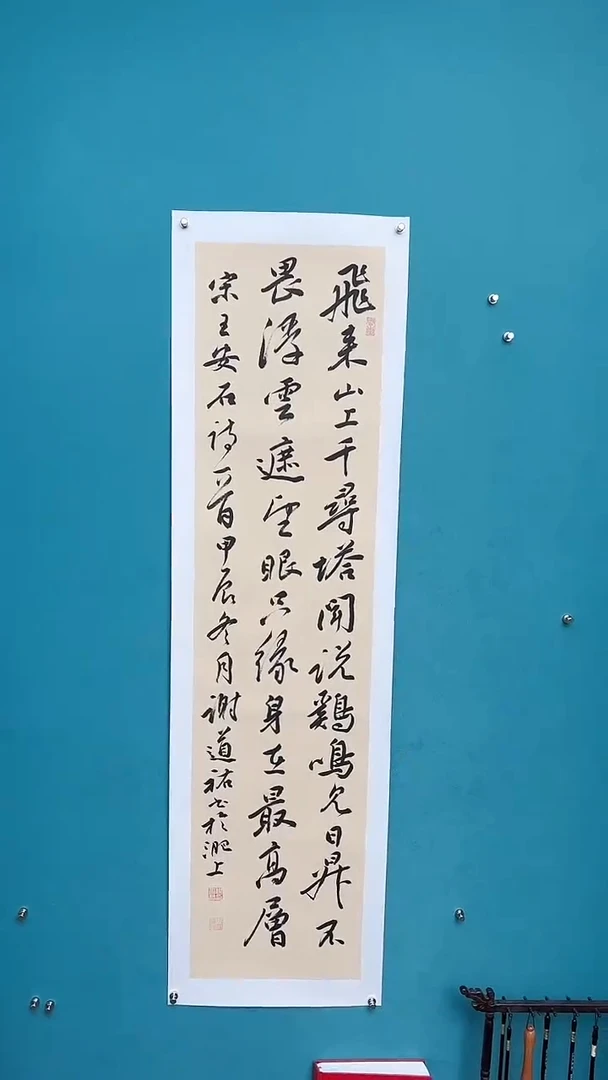 飛来山上千尋塔聞説鷄鳴見日昇不
畏浮雲遮望眼只緣身在最高層
宋王安石詩一首甲辰冬月謝道祐书於淝上